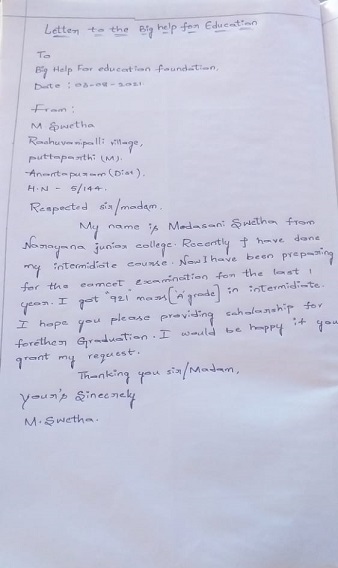 Letter to the Big help for Education
To
Big Help For education foundation.
Date : 03-09-2021
From:
M. Swetha
village,
puttaparthi (M).
Anantapuram (Dist).
H.N - 5/144.
Respected sir/madam.
My name is Madasani Swetha from
Narayana junior college. Recently I have done
my intermidiate course. Now I have been preparing
for the eamcet examination for the last 1
year. I got "921 mars ['A' grade] in intermidiate.
I hope you please providing scholarship for
forether Graduation. I would be happy if you
grant my request.
Thanking you sir/Madam,
Your's Sinecrely
M. Swetha.